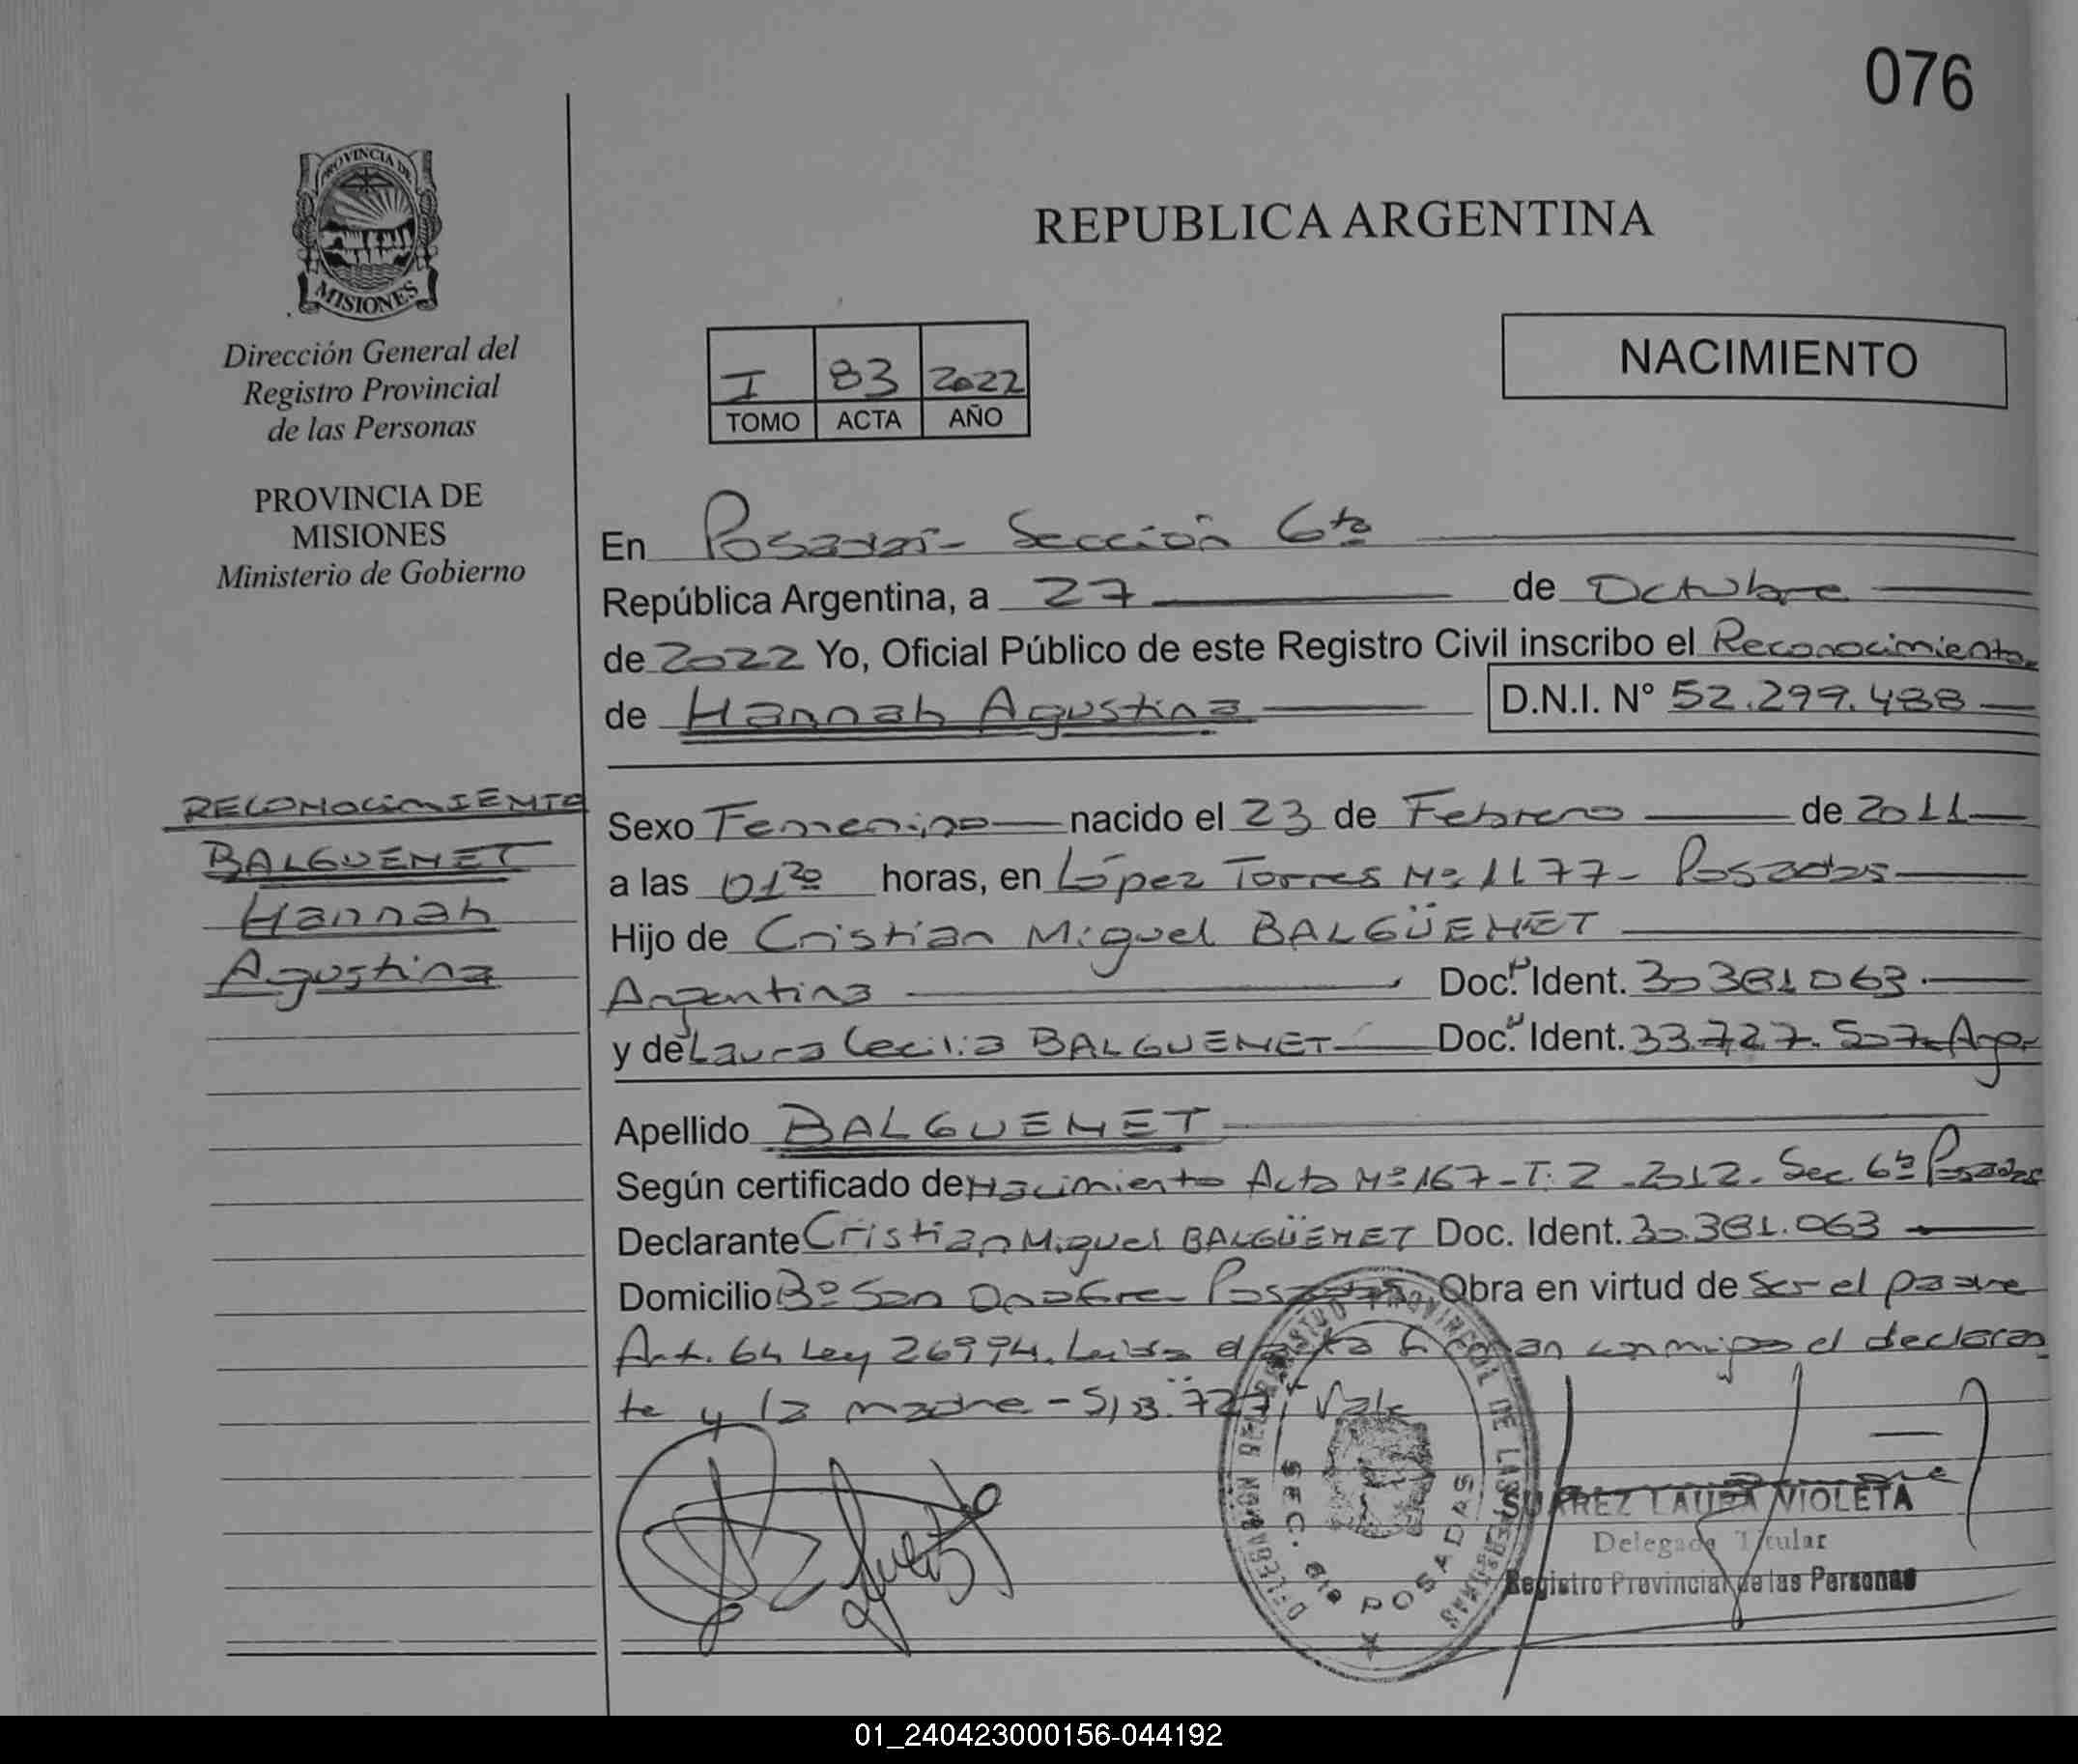 076
PROVINCIA DE
MISIONES
Dirección General del
Registro Provincial
de las Personas
PROVINCIA DE
MISIONES
Ministerio de Gobierno
REPUBLICA ARGENTINA
I 83 2022
TOMO ACTA AÑO
NACIMIENTO
En Posadas- Sección 6ta
República Argentina, a 27 de Octubre
de 2022 Yo, Oficial Público de este Registro Civil inscribo el Reconocimiento
de Hannah Agustina D.N.I. N° 52.299.488
RECONOCIMIENTO
BALGUENET
Hannah
Agustina
Sexo Femenino nacido el 23 de Febrero de 2011
a las 01 20 horas, en López Torres Nº 1177- Posadas
Hijo de Cristian Miguel BALGÜENET
Argentina Doc. Ident. 30381063
y de Laura Cecilia BALGUENET Doc. Ident. 33.727.507 Arg.
Apellido BALGUENET
Según certificado de Nacimiento Acta Nº 167-T: 2-2012. Sec. 6ta Posadas
Declarante Cristian Miguel BALGÜENET Doc. Ident. 30.381.063
Domicilio Bº San Onofre- Posadas Obra en virtud de Ser el padre
Art. 64 Ley 26994. Leída el acta firman conmigo el declaran
te y la madre - S/B: 727: Vale
DELEGACION DEL REGISTRO PROVINCIAL DE LAS PERSONAS
SEC. 6ta POSADAS
SUAREZ LAURA VIOLETA
Delegada Titular
Registro Provincial de las Personas
01_240423000156-044192